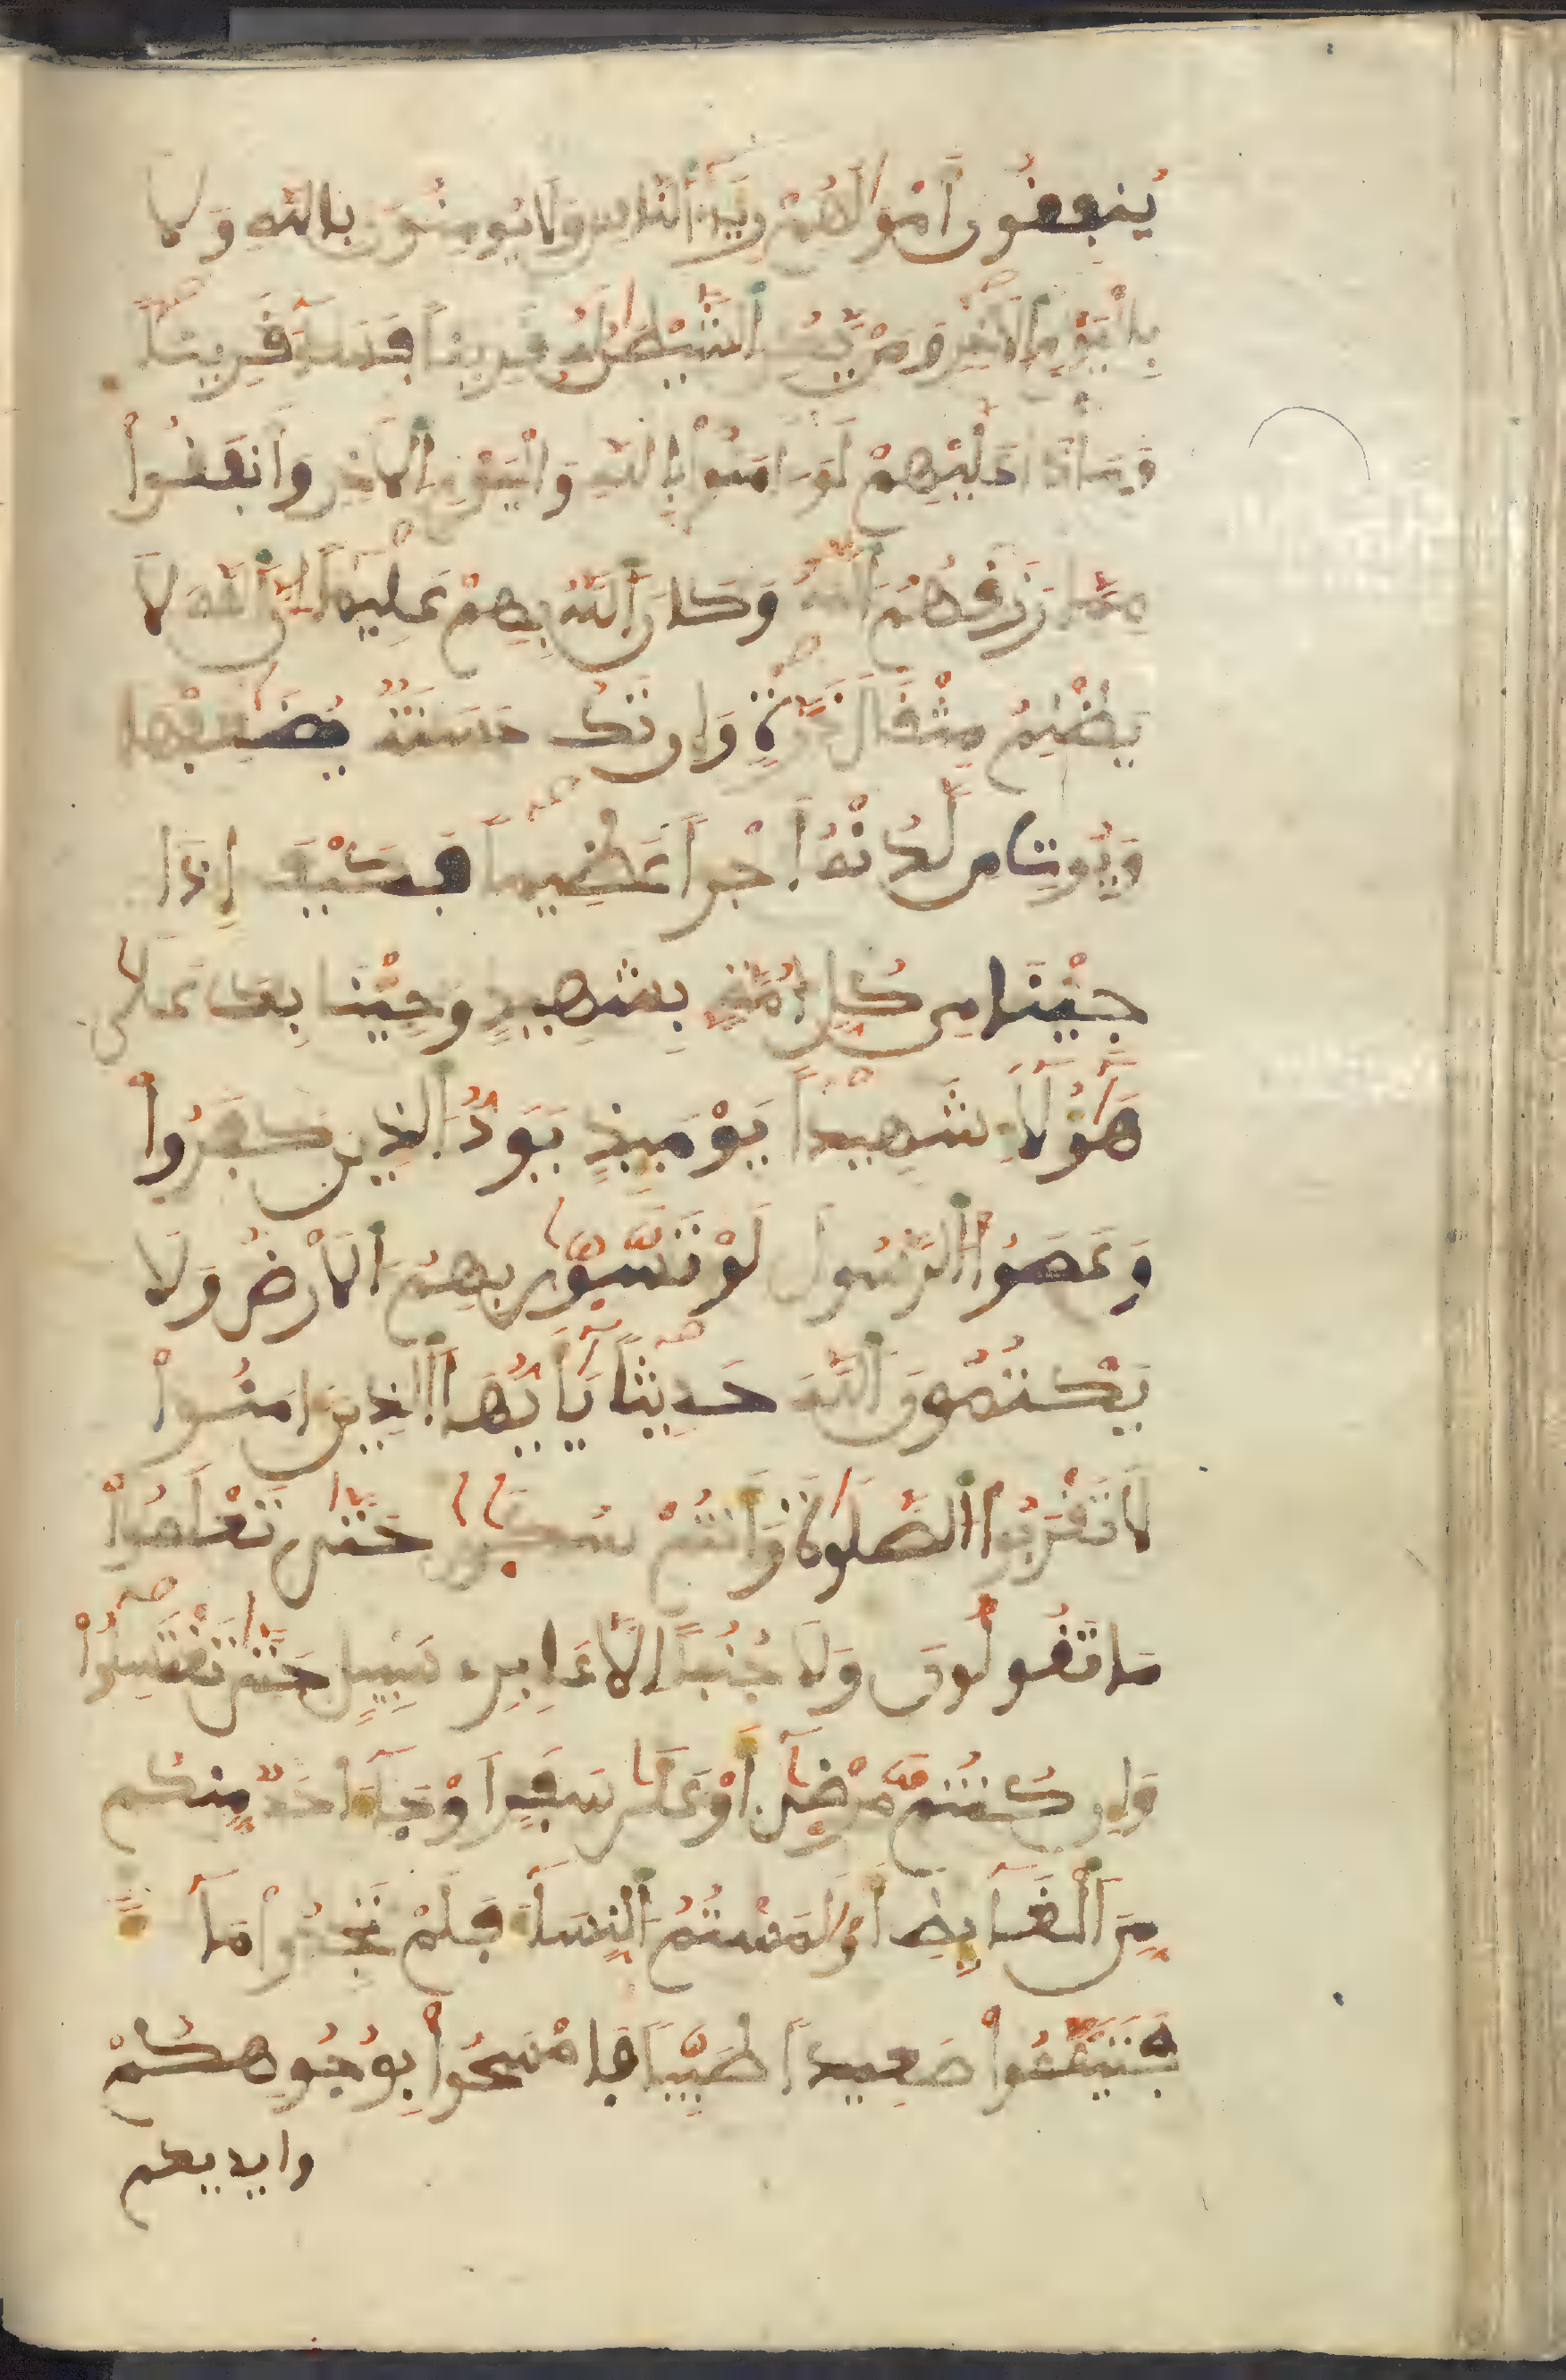 يُنفِقُونَ أَمْوَٰلَهُمْ رِيَآءَ ٱلنَّاسِ وَلَا يُومِنُونَ بِاللَّهِ وَلَا
بِالْيَوْمِ ٱلَاخِرِ وَمَنْ يَّكُنِ ٱلشَّيْطَٰنُ لَهُ قَرِيناً فَسَآءَ قَرِيناً
وَمَاذَا عَلَيْهِمْ لَوَ امَنُواْ بِاللَّهِ وَالْيَوْمِ ٱلَاخِرِ وَأَنفَقُواْ
مِمَّا رَزَقَهُمُ ٱللَّهُ وَكَانَ ٱللَّهُ بِهِمْ عَلِيماً إِنَّ ٱللَّهَ لَا
يَظْلِمُ مِثْقَالَ ذَرَّةٍ وَإِن تَكُ حَسَنَةٌ يُضَٰعِفْهَا
وَيُوتِ مِن لَّدُنْهُ أَجْراً عَظِيماً فَكَيْفَ إِذَا
جِيْنَا مِن كُلِّ أُمَّةٍ بِشَهِيدٍ وَجِيْنَا بِكَ عَلَىٰ
هَٰٓؤُلَآءِ شَهِيداً يَوْمَيِذٍ يَوَدُّ ٱلذِينَ كَفَرُواْ
وَعَصَوُاْ ٱلرَّسُولَ لَوْ تَسَّوَّىٰ بِهِمُ ٱلَارْضُ وَلَا
يَكْتُمُونَ ٱللَّهَ حَدِيثاً يَٰٓأَيُّهَا ٱلذِينَ امَنُواْ
لَا تَقْرَبُواْ ٱلصَّلَوٰةَ وَأَنتُمْ سُكَٰرَىٰ حَتَّىٰ تَعْلَمُواْ
مَا تَقُولُونَ وَلَا جُنُباً إِلَّا عَابِرِي سَبِيلٍ حَتَّىٰ تَغْتَسِلُواْ
وَإِن كُنتُم مَّرْضَىٰٓ أَوْ عَلَىٰ سَفَرٍ اَوْ جَآءَ احَدٌ مِّنكُم
مِّنَ ٱلْغَآيِطِ أَوْ لَٰمَسْتُمُ ٱلنِّسَآءَ فَلَمْ تَجِدُواْ مَآءً
فَتَيَمَّمُواْ صَعِيداً طَيِّباً فَامْسَحُواْ بِوُجُوهِكُمْ
وايديكم